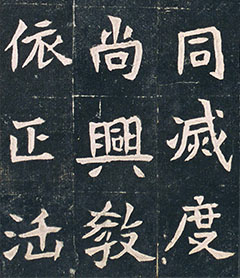 同滅度
尚興教
依正法